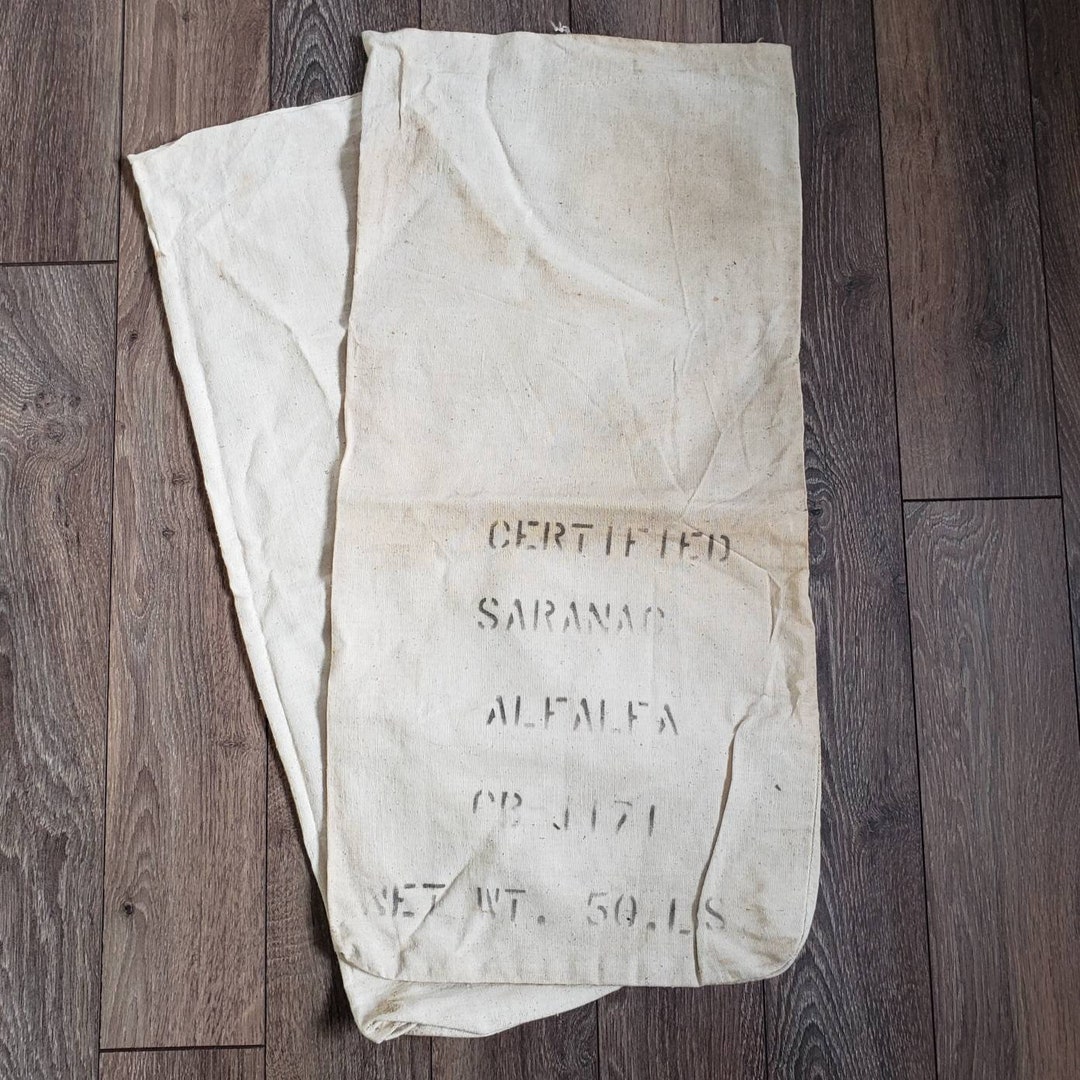 CERTIFIED
SARANAC
ALFALFA
CB-J171
NET WT. 50.LS